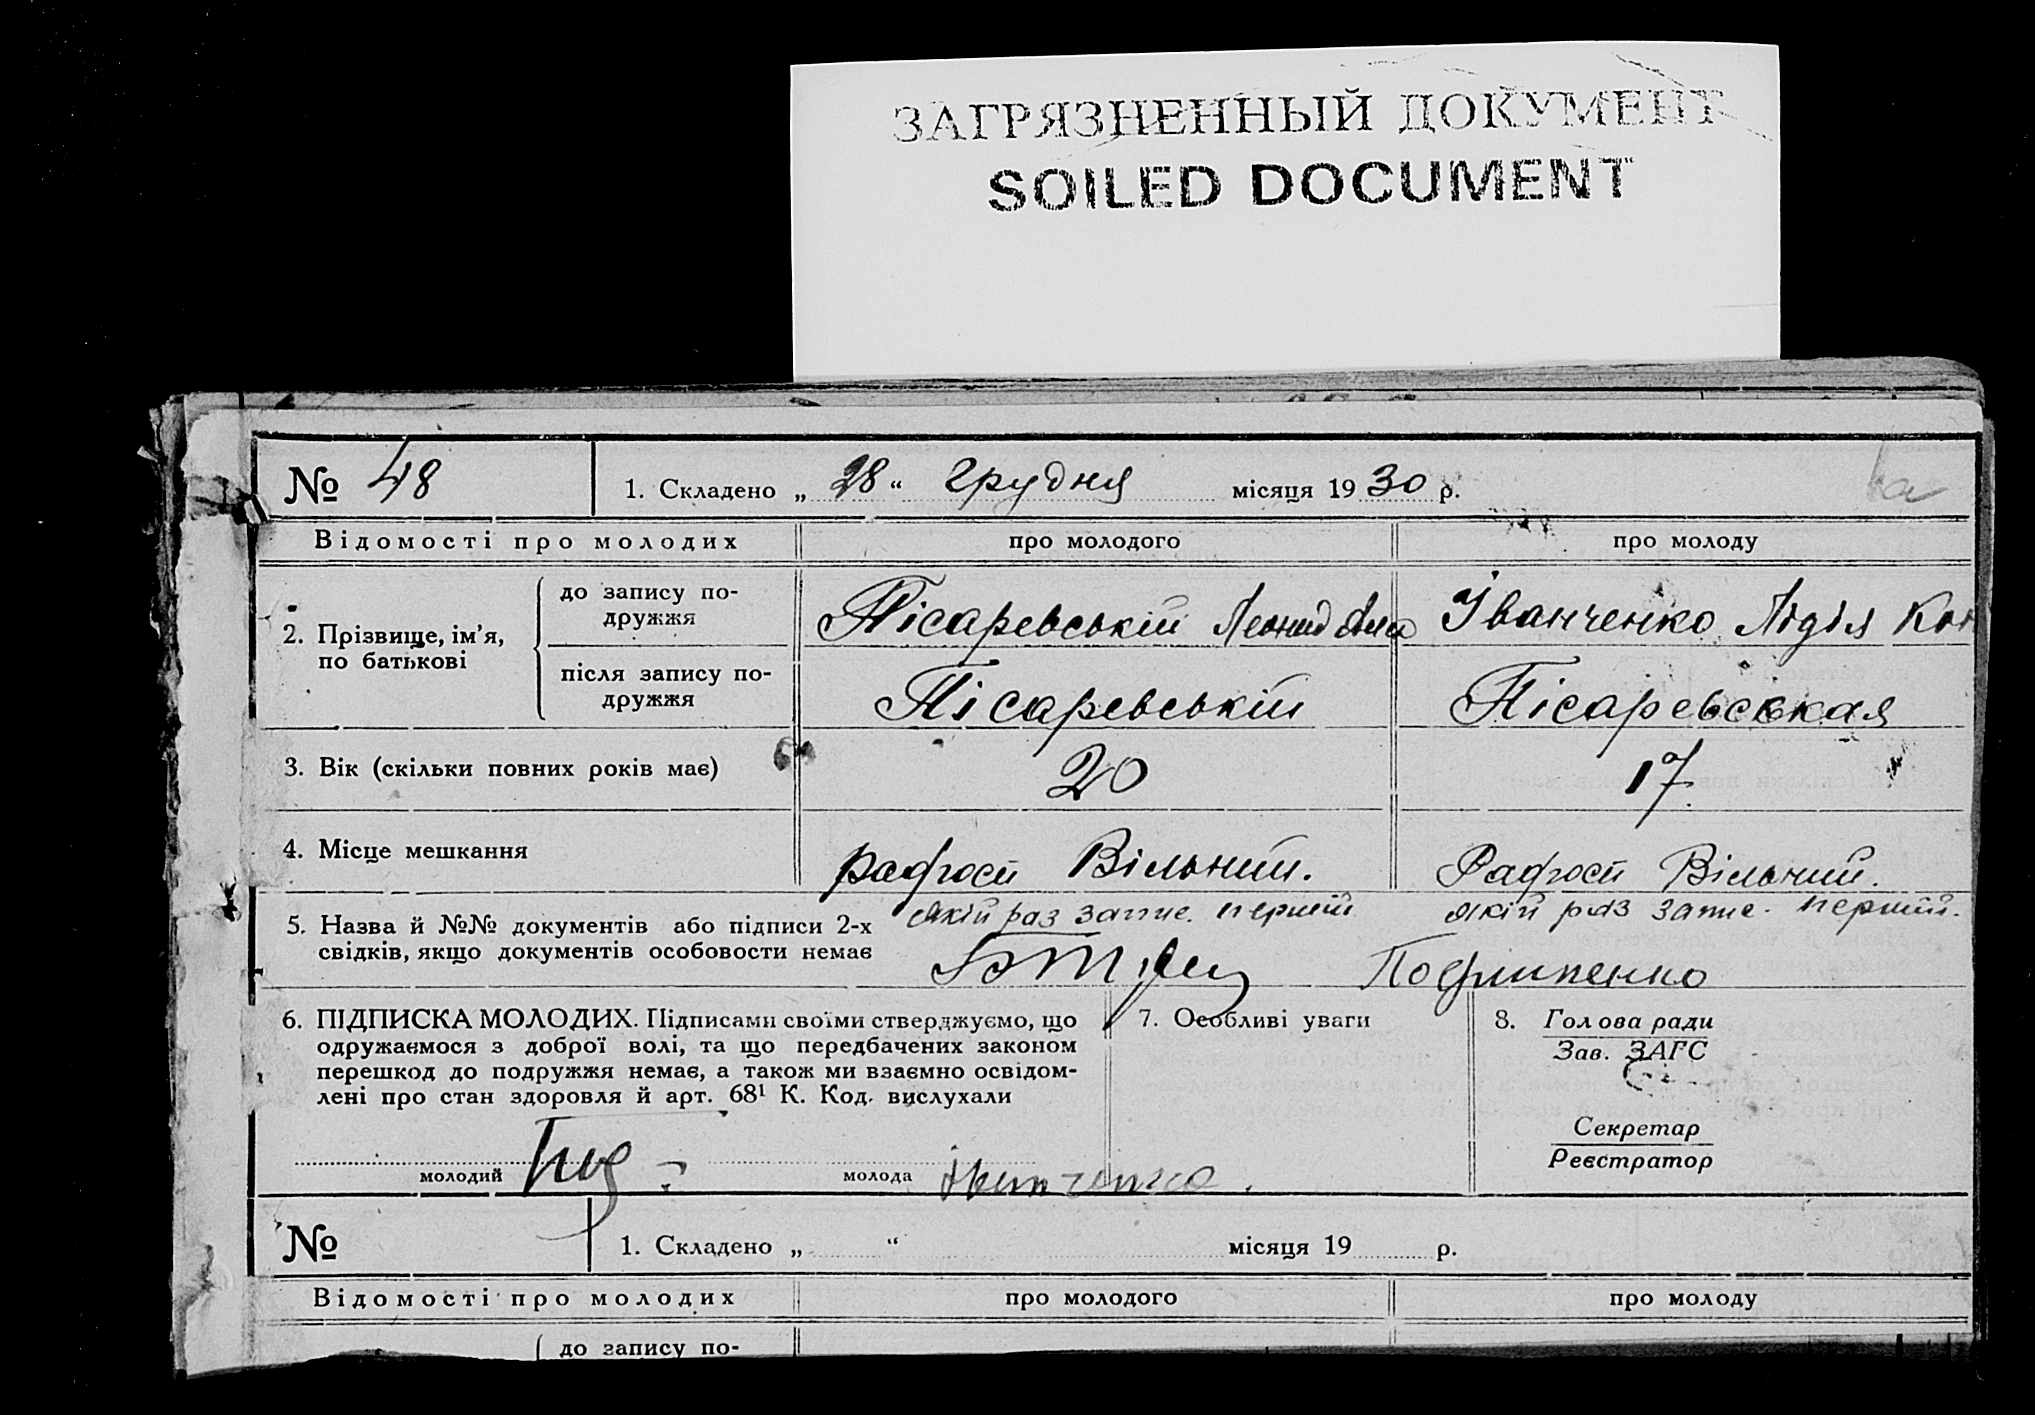 ЗАГРЯЗНЕННЫЙ ДОКУМЕНТ
SOILED DOCUMENT
№ 48 1. Складено „ 28 “ грудня місяця 19 30 р.
Відомості про молодих про молодого про молоду
2. Прізвище, ім’я, по батькові
до запису по-
дружжя
Пісаревській Леонид Іванченко Лідія
після запису по-
дружжя
Пісаревській Пісаревская
3. Вік (скільки повних років має) 20 17
4. Місце мешкання Вільний. Вільний.
якій раз запис. перший якій раз запис. перший.
5. Назва й №№ документів або підписи 2-х
свідків, якщо документів особовости немає
6. ПІДПИСКА МОЛОДИХ. Підписами своїми стверджуємо, що
одружаємося з доброї волі, та що передбачених законом
перешкод до подружжя немає, а також ми взаємно освідом-
лені про стан здоровля й арт. 68¹ К. Код. вислухали
молодий молода Іванченко.
7. Особливі уваги
8. Голова ради
Зав. ЗАГС
Секретар
Реєстратор
№ 1. Складено „ “ місяця 19 р.
Відомості про молодих про молодого про молоду
до запису по-